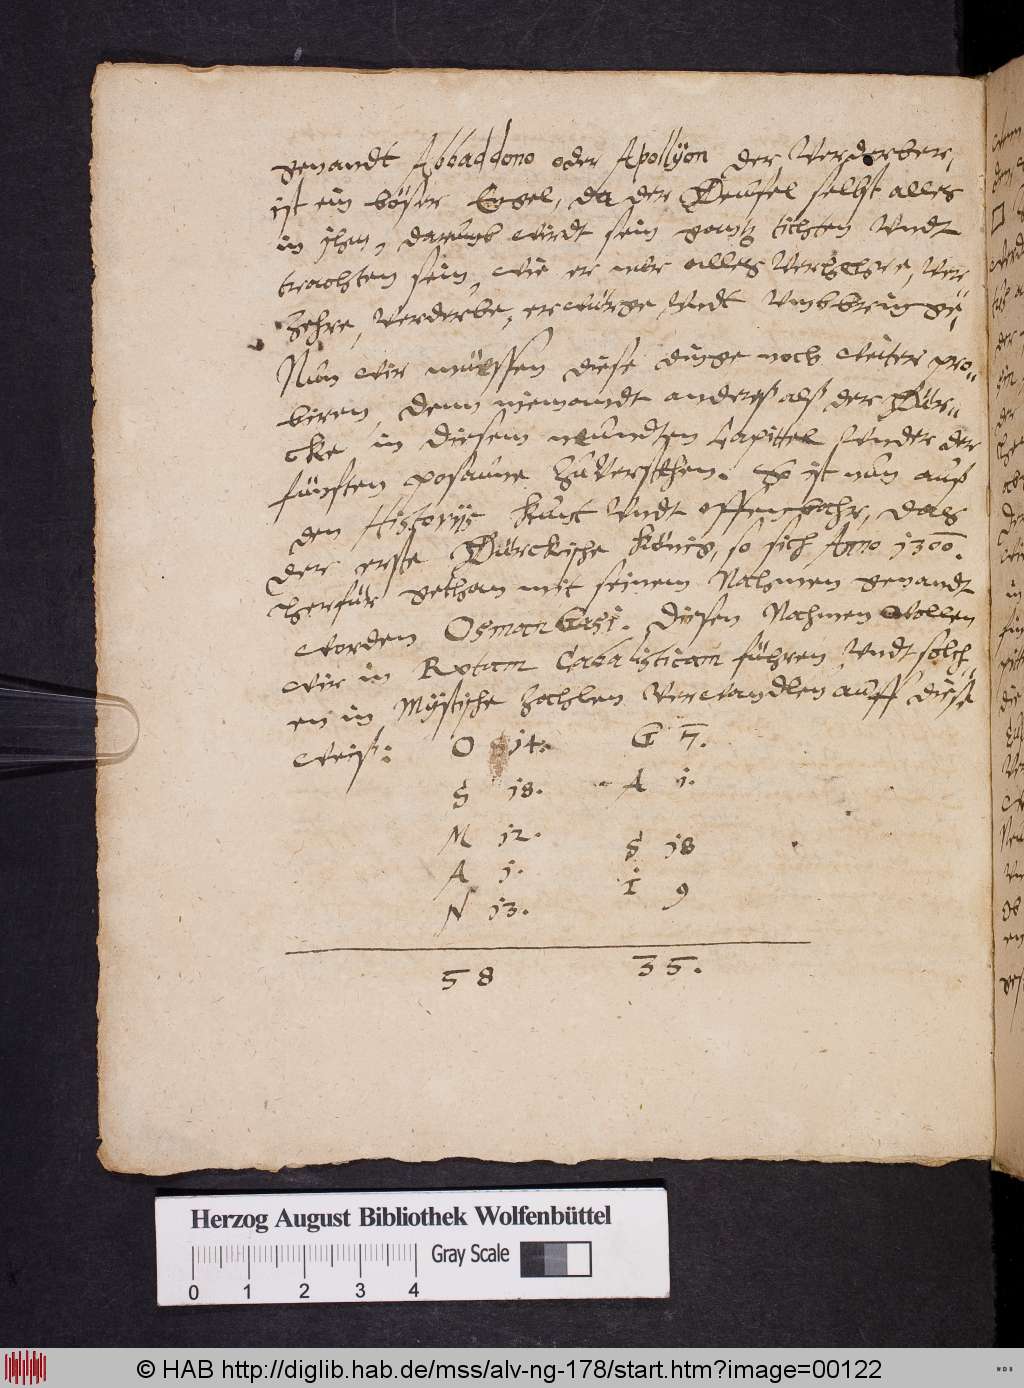 genandt Abbaddono oder Apollyon der Verderber,
ist ein böser Engel, da der Deufel selbst alles
in ihm, darumb wirdt sein gantz tichten Vndt
trachten sein, wie er nur alles Verhehre, Ver
Zehre, Verderbe, erwürge Vndt Vmbbringe,
Nun wir müessen diese dinge noch weiter pro-
biren, denn niemandt anderß alß der Dür-
cke in diesem neundten Capittel Vnder der
fünften posaune ZuVerstehen. Es ist nun auß
den Historijs kunt Vndt offenbahr, dass
der erste Dürckische König, so sich Anno 1300.
herfür gethan mit seinem Nahmen genandt
worden Osman Gasi. Diesen Nahmen wollen
wir in Rotam Cabalisticam führen, Vndt solch
en in Mystische Zahlen Verwandlen auff diese
weiß: O 14. G 7.
S 18. A 1.
M 12.
S 18
A 1.
I 9
N 13.
58 35.
Herzog August Bibliothek Wolfenbüttel
Gray Scale
0 1 2 3 4
© HAB http://diglib.hab.de/mss/alv-ng-178/start.htm?image=00122